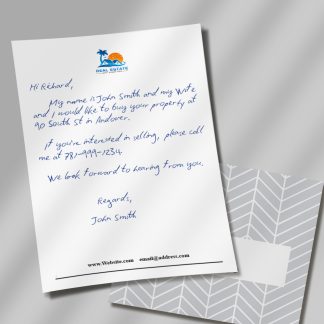 REAL ESTATE
Hi Richard,
My name is John Smith and my Wife
and I would like to buy your property at
90 South St in Andover.
If you're interested in selling, please call
me at 781-999-1234.
We look forward to hearing from you.
Regards,
John Smith
www.Website.com email@address.com